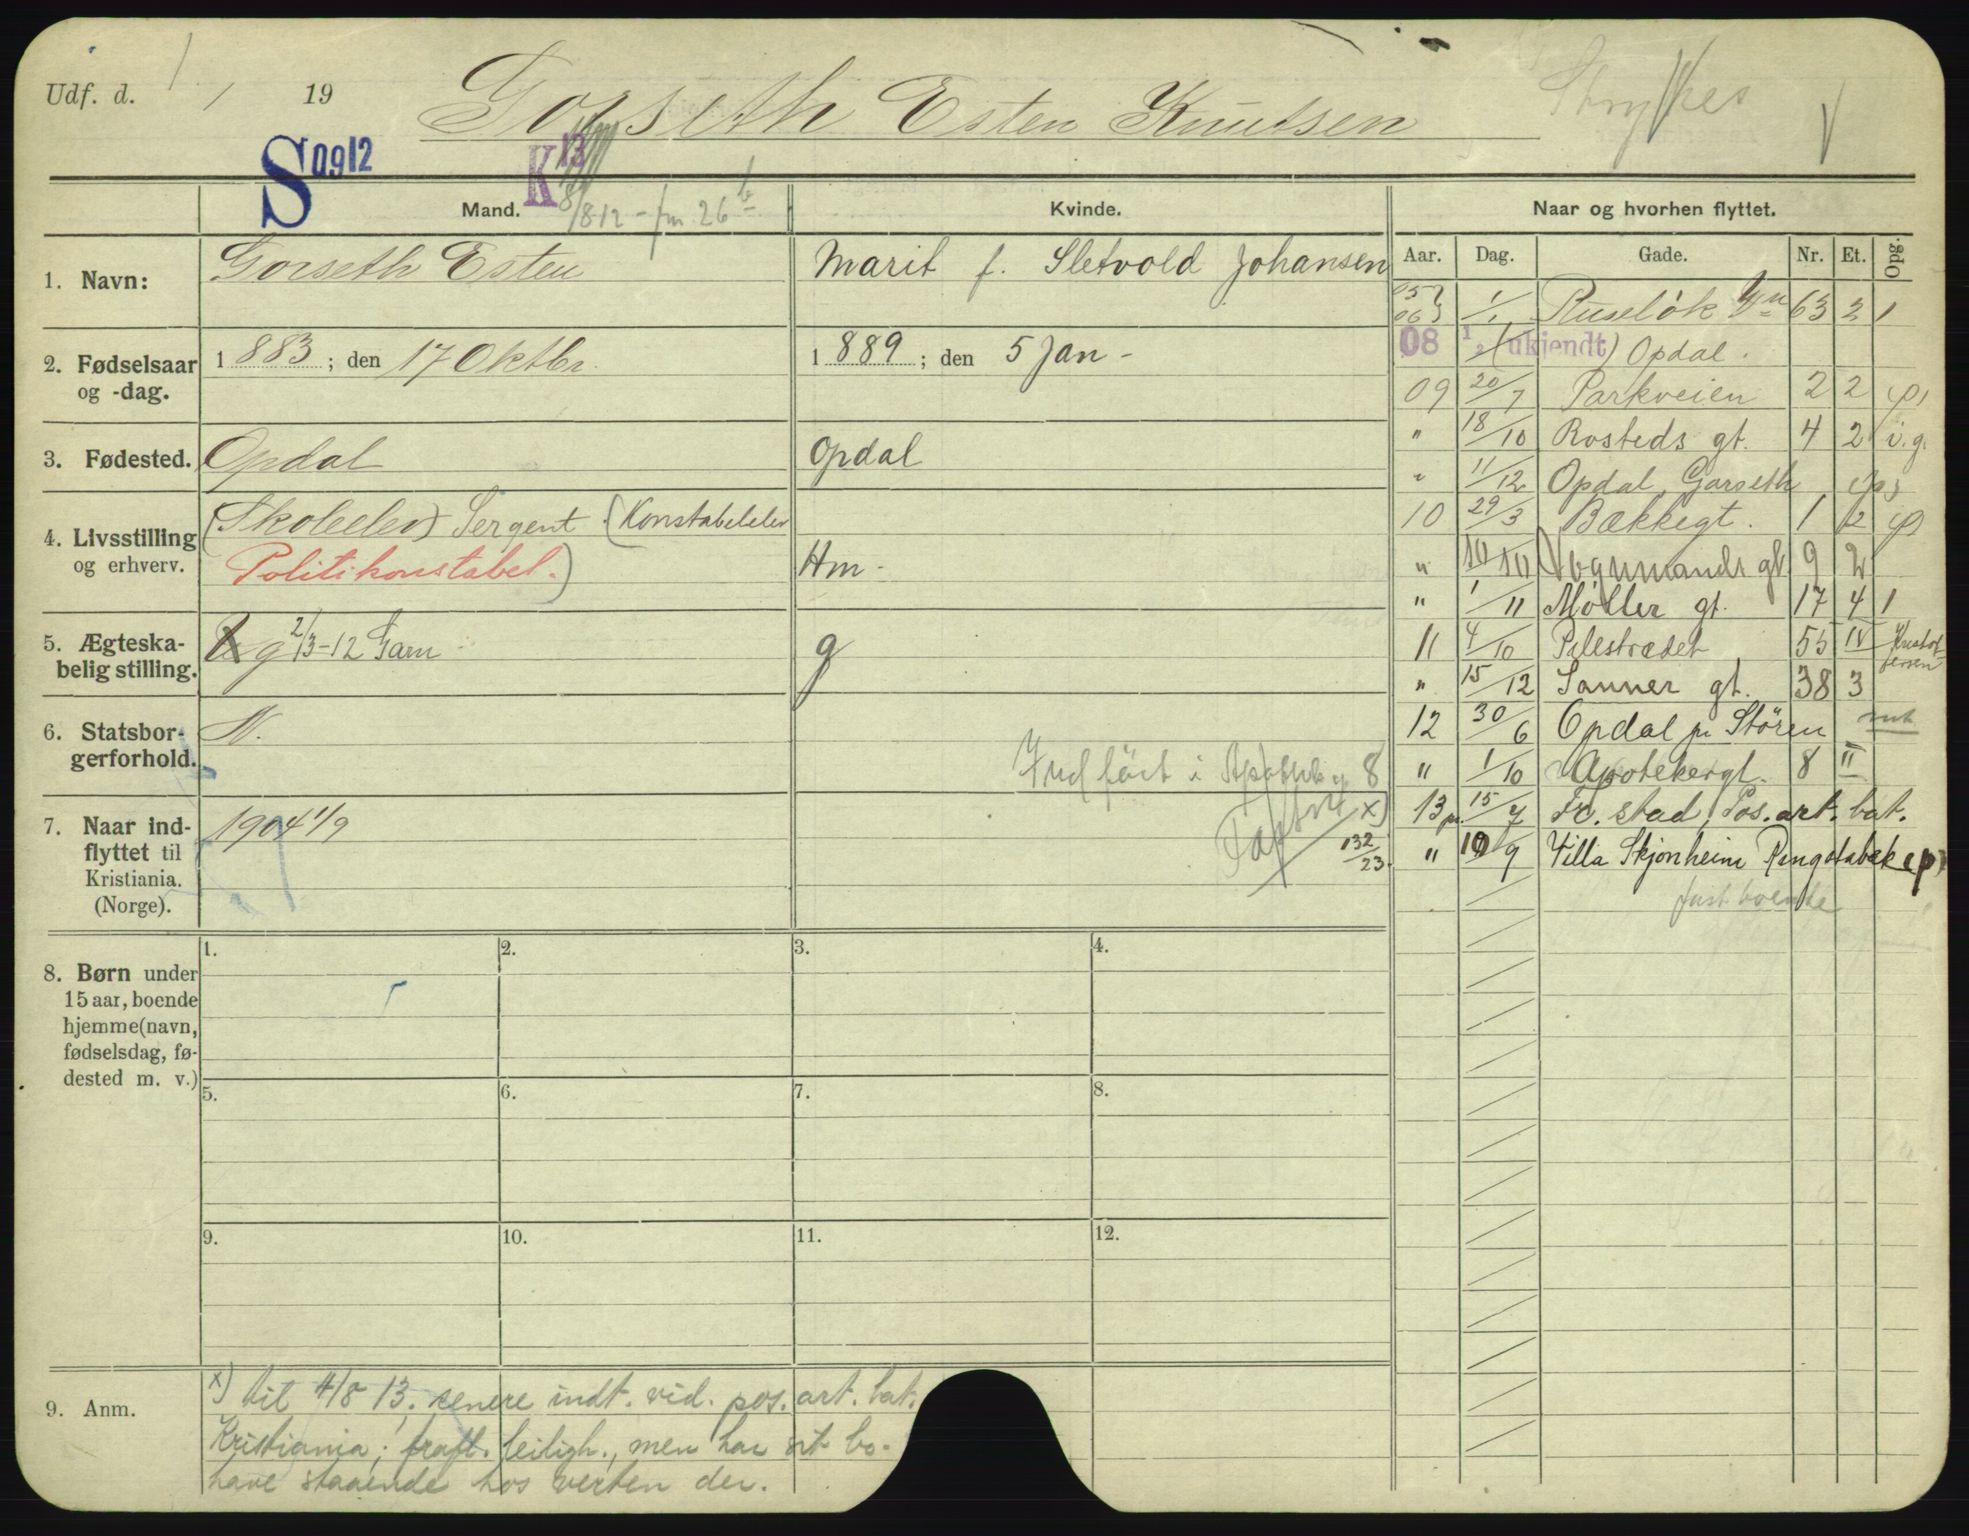 Udf. d. / 19
Gorseth Esten Knutsen
Strykes
S 0912
K 13
8/8 12 - fm. 26
Mand.
Kvinde.
Naar og hvorhen flyttet.
1. Navn:
Gorseth Esten
Marit f. Sletvold Johansen
2. Fødselsaar og -dag.
1883; den 17 Oktbr.
1889; den 5 Jan -
3. Fødested.
Opdal
Opdal
4. Livsstilling og erhverv.
(Skoleelev) Sergent (Konstabelelev
Politikonstabel.)
Hm -
5. Ægteskabelig stilling.
U g 2/3-12 Gam
g
6. Statsborgerforhold.
N.
7. Naar indflyttet til Kristiania. (Norge).
1904 1/9
Indført i Apothekg 8
x)
132/23.
8. Børn under 15 aar, boende hjemme (navn, fødselsdag, fødested m. v.)
1. 2. 3. 4.
5. 6. 7. 8.
9. 10. 11. 12.
9. Anm.
x) til 4/8 13. senere indt. vid. pos. art. bat.
Kristiania; frafl. leiligh., men har sit bo-
have staaende hos verten der.
Aar. Dag. Gade. Nr. Et. Opg.
05 06 } 1/1 Ruseløk Vn 63 2 1
08 1/2 (ukjendt) Opdal.
09 20/7 Parkveien 2 2 ps
" 18/10 Rosteds gt. 4 2 i.g.
" 11/12 Opdal, Gorseth ps
10 29/3 Bækkegt. 1 2 ps
" 10/10 Vognmands gt. 9 2
" 1/11 Møller gt. 17 4 1
11 4/10 Pilestrædet 55 IV Kristoffersen
" 15/12 Sanner gt. 38 3
12 30/6 Opdal pr Stören
" 1/10 Apotekergt. 8 II
13 15/7 Fr. stad, Pos. art. bat.
" 10/9 Villa Skjønheim Ringstabæk (p)
fast boende